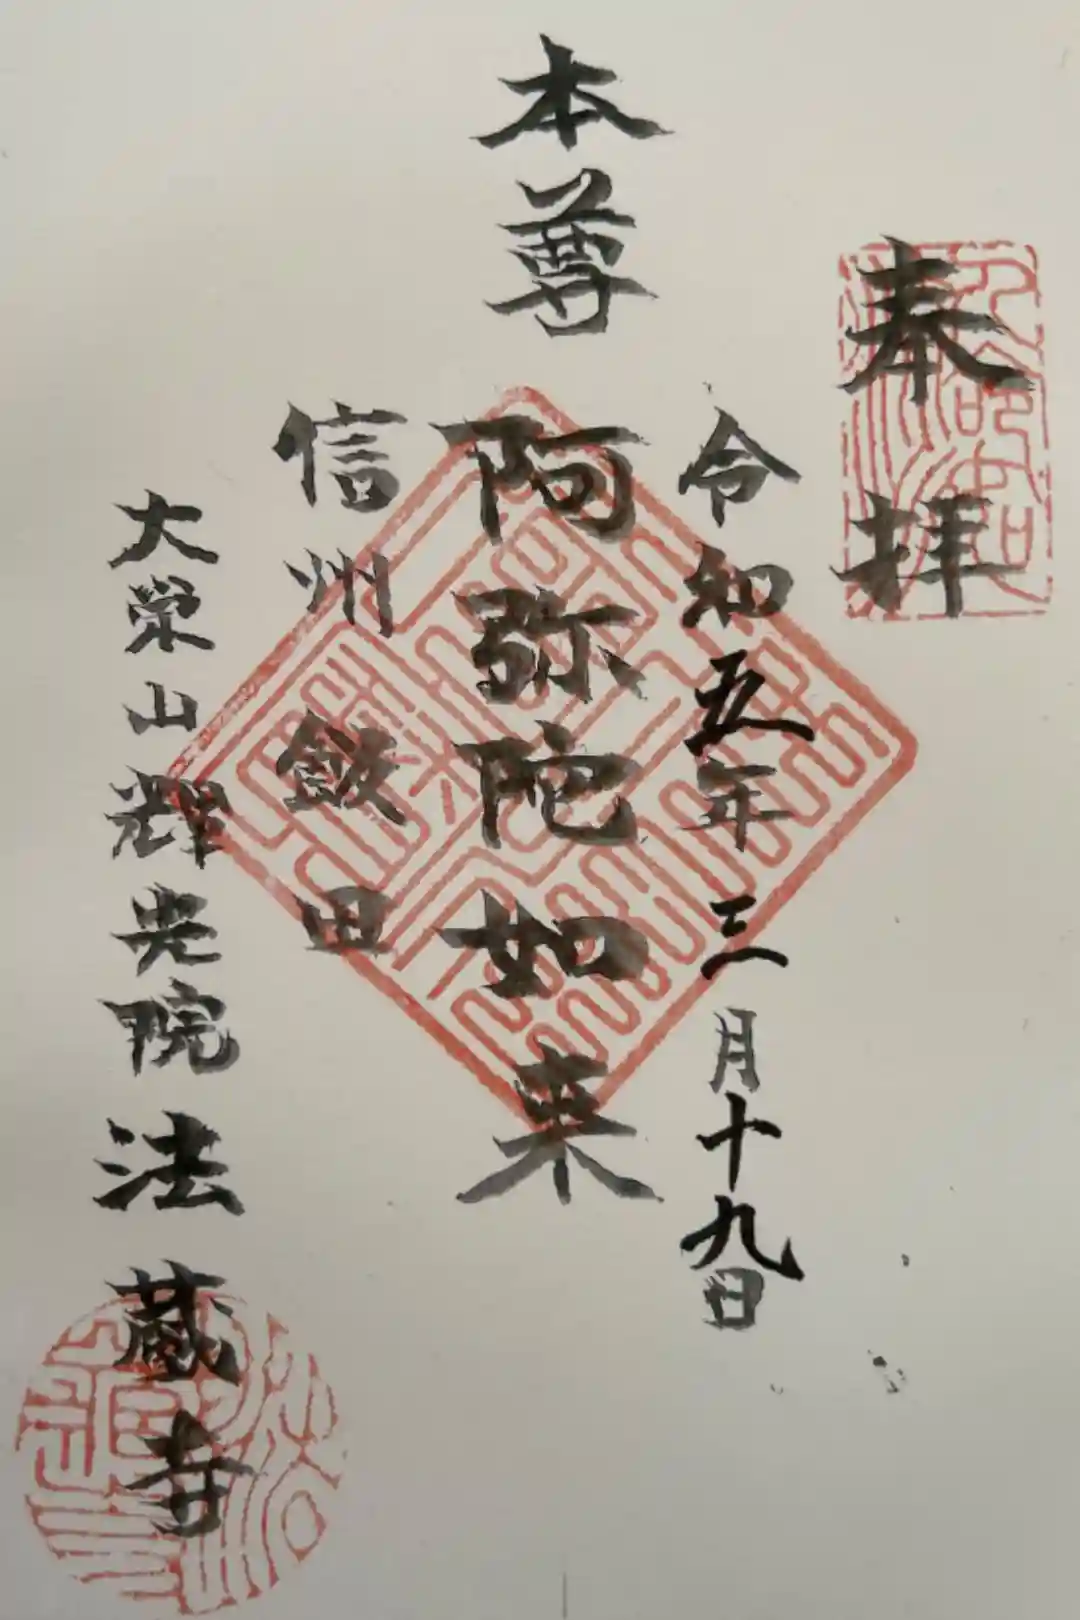 奉拝
令和五年三月十九日
本尊
阿弥陀如来
信州飯田
大栄山輝光院法蔵寺